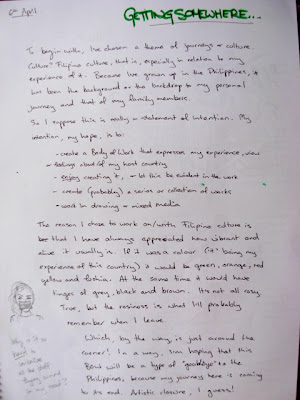 6th April
GETTING SOMEWHERE...
To begin with, I've chosen a theme of journeys + culture.
Culture? Filipino culture, that is, especially in relation to my
experience of it. Because I've grown up in the Philippines, it
has been the background or the backdrop to my personal
journey and that of my family members.
So I suppose this is really a statement of intention. My
intention, my hope, is to:
- create a Body of Work that expresses my experience, view
+ feelings about/of my host country
- enjoy creating it, + let this be evident in the work
- create (probably) a series or collection of works
- work in drawing + mixed media
The reason I chose to work on/with Filipino culture is
be that I have always appreciated how vibrant and
alive it usually is. If it was a colour (it being my
experience of this country) it would be green, orange, red
yellow and fushia. At the same time it would have
tinges of grey, black and brown. It's not all rosy.
True, but the rosiness is what I'll probably
remember when I leave.
Which, by the way, is just around the
corner! In a way, I'm hoping that this
BOW will be a type of "goodbye" to the
Philippines, because my journey here is coming
to its end. Artistic closure, I guess!
Why is it so
hard to